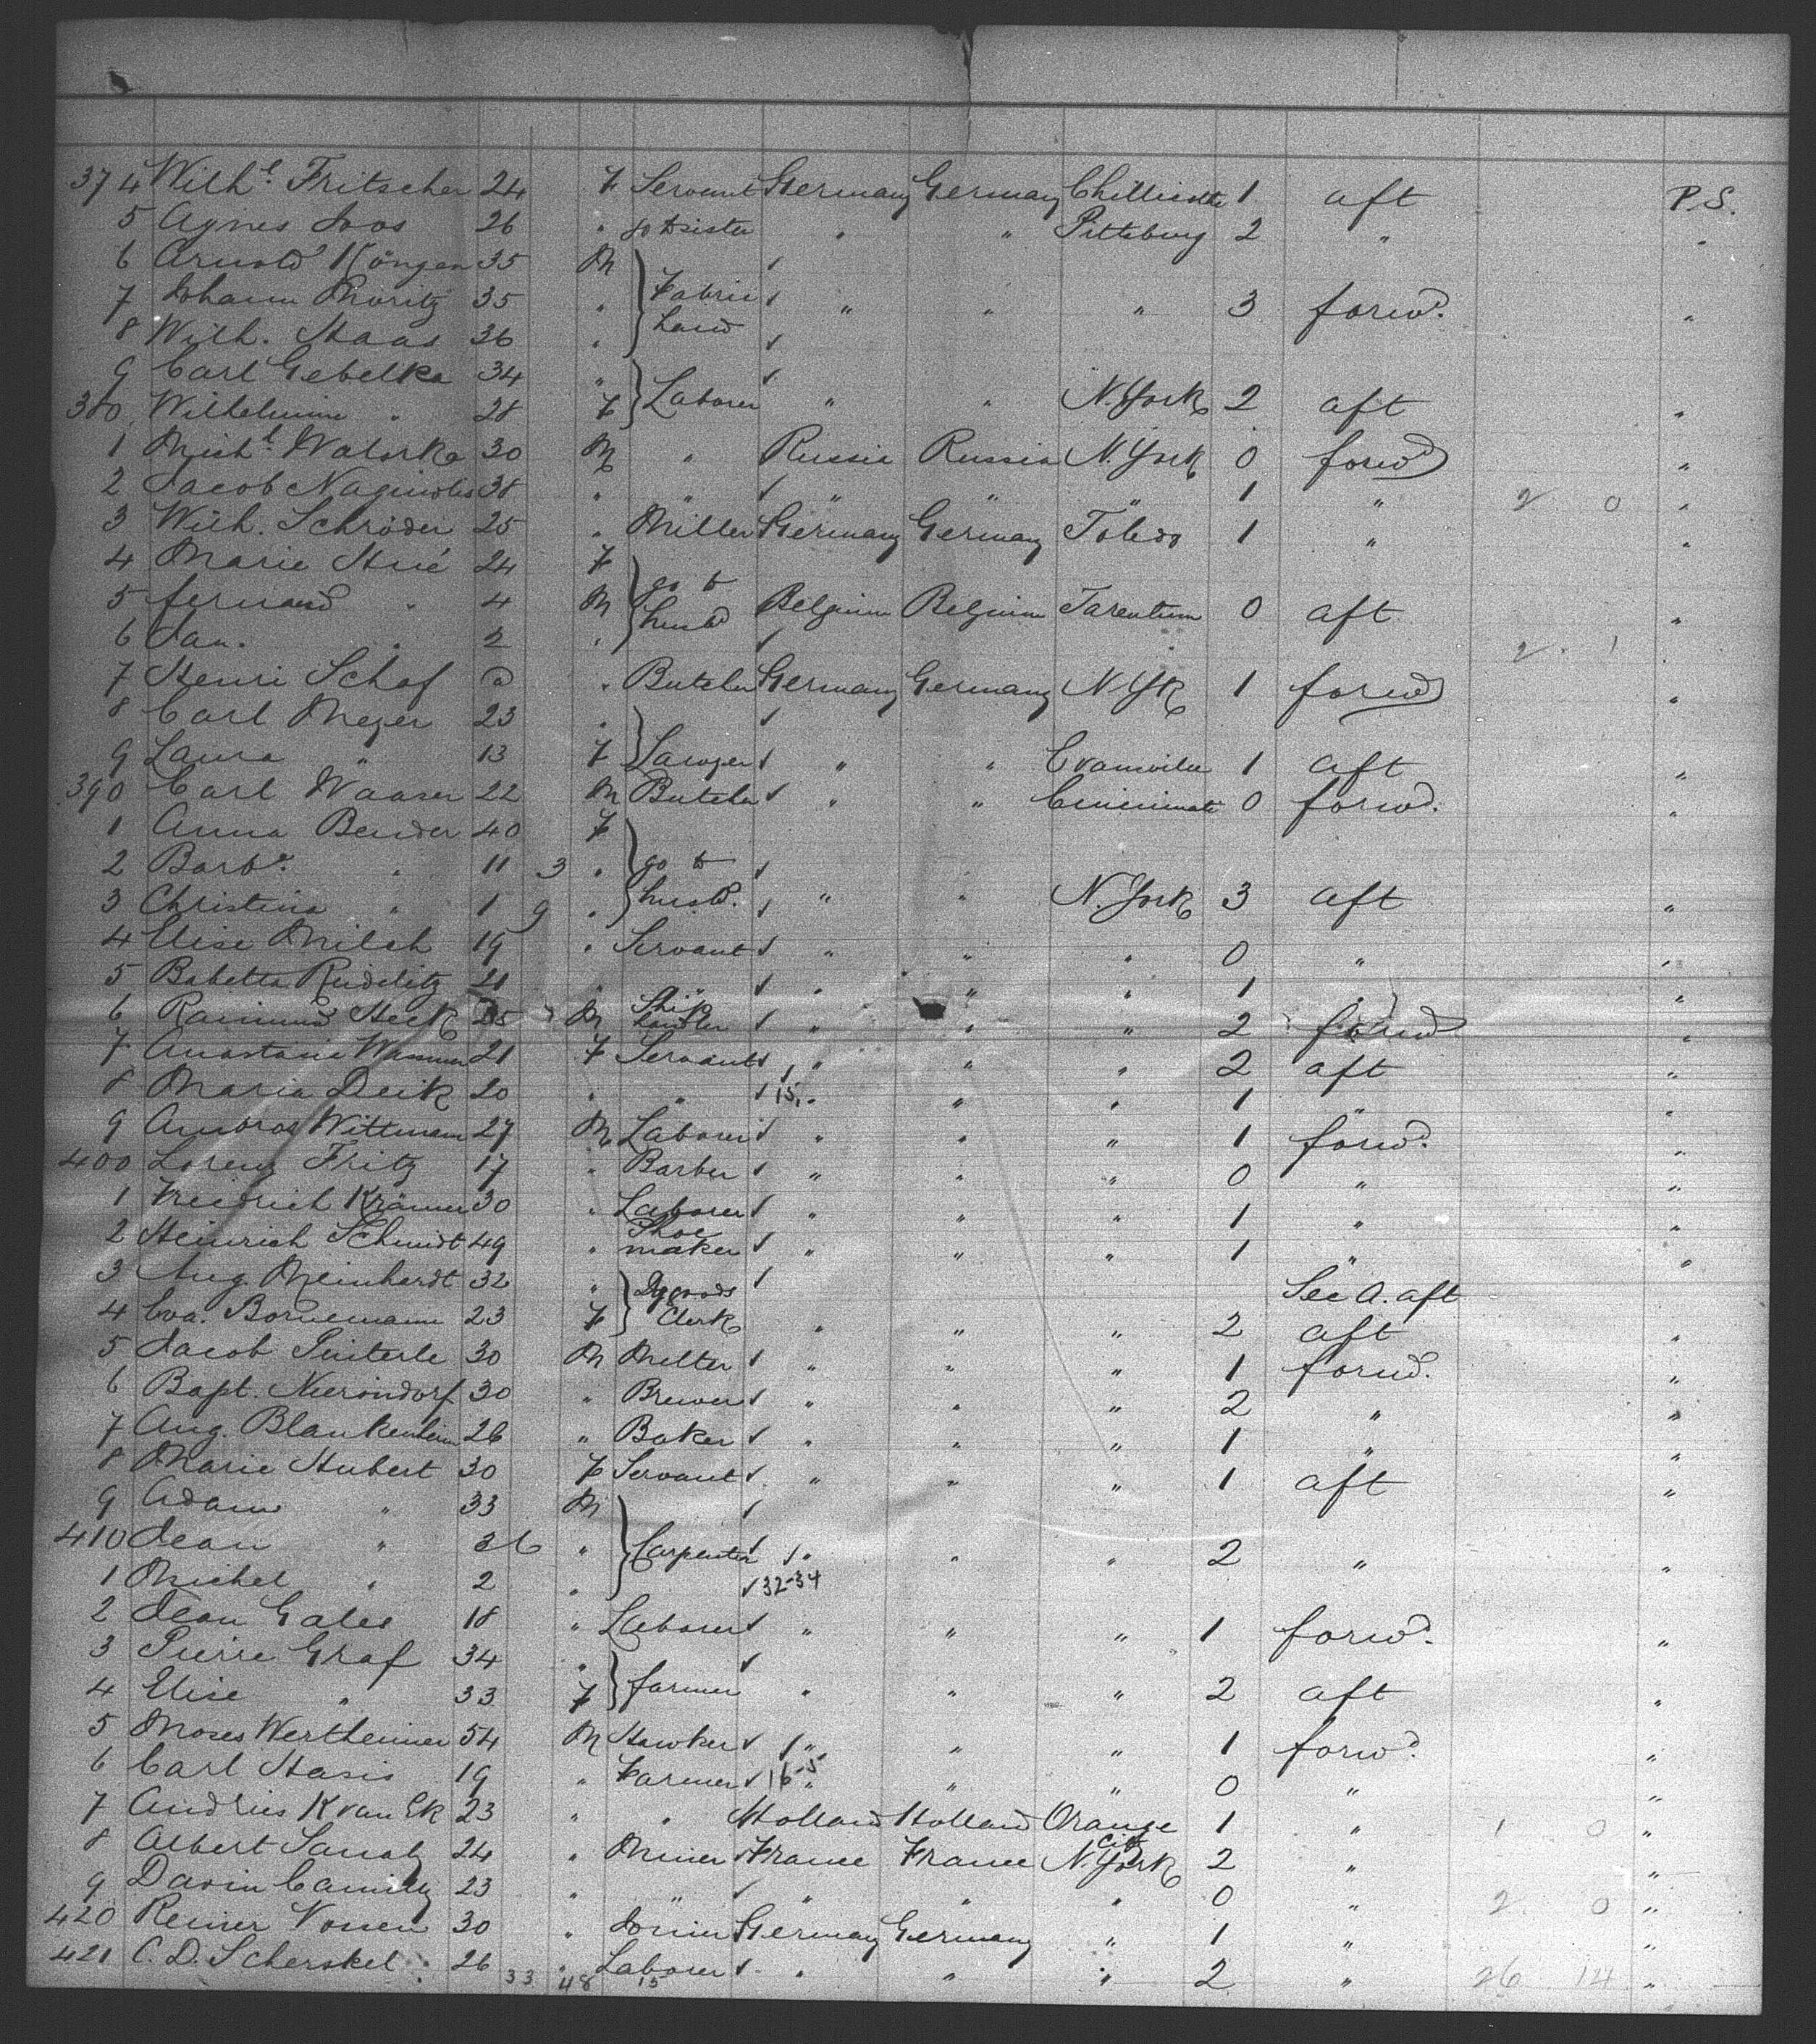 374 Wilh.l Fritscher 24 F Servant Germany Germany Chillicothe 1 aft P.S.
5 Agnes Loos 26 " go to sister " " Pittsburg 2 " "
6 Arnold Köngen 35 M
7 Johann Moritz 35 " Fabric hand " " " 3 forwd. "
8 Wilh. Haas 36 "
9 Carl Gebelka 34 "
380 Wilhelmine " 28 F Laborer " " N. York 2 aft "
1 Mich.l Watorka 30 M " Russia Russia N. York 0 forwd "
2 Jacob 38 " " " " " 1 " 2 0 "
3 Wilh. Schröder 25 " Miller Germany Germany Toledo 1 " "
4 Marie Hué 24 F
5 fernand " 4 M go to husbd Belgium Belgium Tarentum 0 aft "
6 Jan. " 2 " 2 1
7 Henri Schaf " Butcher Germany Germany N. Yk 1 forwd "
8 Carl Meyer 23 "
9 Laura " 13 F Lawyer " " Evansville 1 aft "
390 Carl Waaser 22 M Butcher " " Cincinnati 0 forwd. "
1 Anna Bender 40 F
2 Barb.a " 11 3 " go to
3 Christina " 1 9 " husbd. " " N. York 3 aft "
4 Elise Milch 19 " Servant " " " 0 " "
5 Babetta Reidelitz 21 " " " " " 1 " "
6 Raimund Heck 25 M " " " 2 forwd "
7 Anastasia 21 F Servant " " " 2 aft "
8 Maria Deik 20 " " 15, " " " 1 " "
9 Ambros Wittmann 27 M Laborer " " " 1 forwd. "
400 Lorenz Fritz 17 " Barber " " " 0 " "
1 Friedrich Krämer 30 " Laborer " " " 1 " "
2 Heinrich Schmidt 49 " Shoe maker " " " 1 " "
3 Aug. Meinhardt 32 " See A. aft
4 Eva. Bornemann 23 F Drygoods Clerk " " " 2 aft "
5 Jacob Pinterle 30 M Melter " " " 1 forwd. "
6 Bapt. Nierondorf 30 " Brewer " " " 2 " "
7 Aug. Blankenheim 26 " Baker " " " 1 " "
8 Marie Hubert 30 F Servant " " " 1 aft "
9 Adam " 33 M
410 Jean " 36 " Carpenter " " " 2 " "
1 Michel " 2 " 32-34
2 Jean Gales 18 " Laborer " " " 1 forwd. "
3 Pierre Graf 34 "
4 Elise " 33 F farmer " " " 2 aft "
5 Moses Wertheimer 54 M Hawker " " " 1 forwd. "
6 Carl Hasis 19 " Farmer 16-5 " " " 0 " "
7 Andries K van Ek 23 " " Holland Holland Orange City 1 " 1 0 "
8 Albert 24 " Miner France France N. York 2 " "
9 Davin Camille 23 " " " " " 0 " 2 0 "
420 Reiner Vossen 30 " Joiner Germany Germany " 1 " "
421 C. D. Scherskel 26 " Laborer " " " 2 " 26 14 "
33 48 15